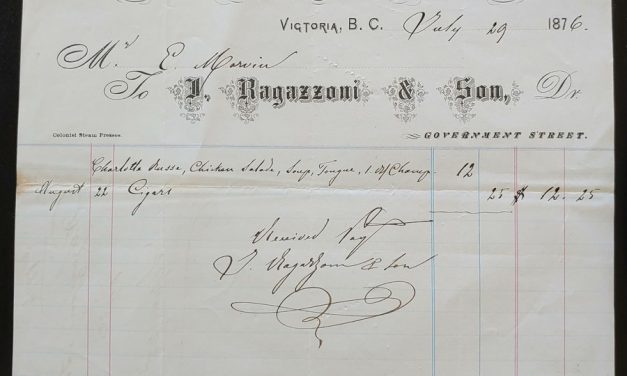 Victoria, B. C. July 29 1876.
Mr E. Marvin
To J. Ragazzoni & Son, Dr
Colonist Steam Presses. GOVERNMENT STREET.
Charlotte Russe, Chicken Salade, Soup, Tongue, 1 Champ. 12
August 22 Cigars 25 $ 12. 25
Received Pay
J. Ragazzoni & Son